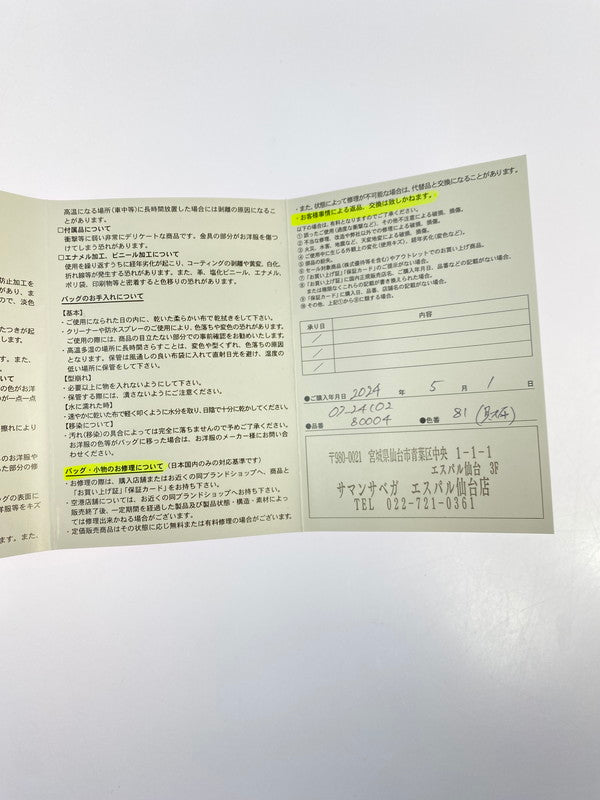 防止加工を
があり、ま
ので、淡色
たつきが起
します。
す。また、
いて
の色がお洋
のが一点一点
擦れにより
からお洋服や
した部分の修
バッグの表面に
洋服等をキズ
ます。また、
高温になる場所(車中等)に長時間放置した場合には剥離の原因になることがあります。
□付属品について
衝撃等に弱い非常にデリケートな商品です。金具の部分がお洋服を傷つけてしまう恐れがあります。
□エナメル加工、ビニール加工について
使用を繰り返すうちに経年劣化が起こり、コーティングの剥離や黄変、白化、折れ線等が発生する恐れがあります。また、革、塩化ビニール、エナメル、ポリ袋、印刷物等と密着すると色移りの恐れがあります。
バッグのお手入れについて
【基本】
・ご使用になられた日の内に、乾いた柔らかい布で乾拭きをして下さい。
・クリーナーや防水スプレーのご使用により、色落ちや変色の恐れがあります。
ご使用の際には、商品の目立たない部分での事前確認をお勧めいたします。
・高温多湿の場所に長時間さらすことは、変色や型くずれ、色落ちの原因となります。保管は風通しの良い布袋に入れて直射日光を避け、湿度の低い場所に保管をして下さい。
【型崩れ】
・必要以上に物を入れないようにして下さい。
・保管する際には、潰さないようにご注意下さい。
【水に濡れた時】
・速やかに乾いた布で軽く叩くように水分を取り、日陰で十分に乾かしてください。
【移染について】
・汚れ(移染)の具合によっては完全に落ちませんので予めご了承ください。
お洋服の色等がバッグに移った場合は、お洋服のメーカー様にお問い合わせください。
バッグ・小物のお修理について(日本国内のみの対応基準です)
・お修理の際は、購入店舗またはお近くの同ブランドショップへ、商品と「お買い上げ証」「保証カード」をお持ち下さい。
・空港店舗については、お近くの同ブランドショップへお持ち下さい。
・販売終了後、一定期間を経過した製品及び製品状態・構造・素材によっては修理出来かねる場合がございます。
・定価販売商品はその状態に応じ無料または有料修理の場合がございます。
・また、状態によって修理が不可能な場合は、代替品と交換になることがあります。
・お客様事情による返品、交換は致しかねます。
以下の場合は、有料となりますのでご了承ください。
① 誤ったご使用(過度な衝撃など)、その他不注意による破損、損傷。
② 不当な修理、改造や弊社以外での修理による破損、損傷。
③ 火災、水害、地震など、天変地変による破損、損傷。
④ ご使用中に生じる外観上の変化(使用キズ)、経年劣化(変色など)。
⑤ 部品の紛失。
⑥ セール対象商品(株式優待等を含む)やアウトレットでのお買い上げ商品。
⑦ 「お買い上げ証」「保証カード」のご提示がない場合。
⑧ 「お買い上げ証」に国内正規販売店名、ご購入年月日、品番などの記載がない場合、または極端なくこれらの記載が書き換えられた場合。
⑨ 「保証カード」に購入日、品番、店舗名の記載がない場合。
⑩ その他、上記①から⑨に類する場合。
承り日 内容
/
/
/
●ご購入年月日 2024 年 5 月 1 日
●品番 07-24102 80004 ●色番 81
〒980-0021 宮城県仙台市青葉区中央 1-1-1
エスパル仙台 3F
サマンサベガ エスパル仙台店
TEL 022-721-0361